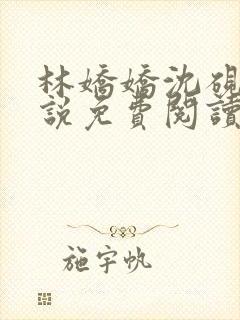 林嬌嬌沈硯
說免費閱讀
施宇帆